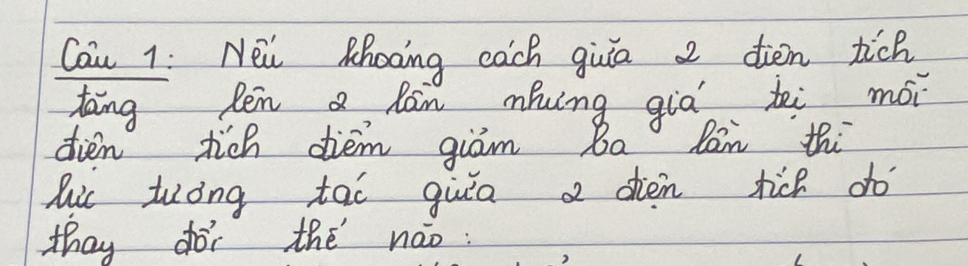 Câu 1: Nếu khoảng cách giữa 2 điện tích
tăng lên 2 lần nhưng giá trị mỗi
điện tích điểm giảm ba lần thì
lực tương tác giữa 2 điện tích đó
thay đổi thế nào: